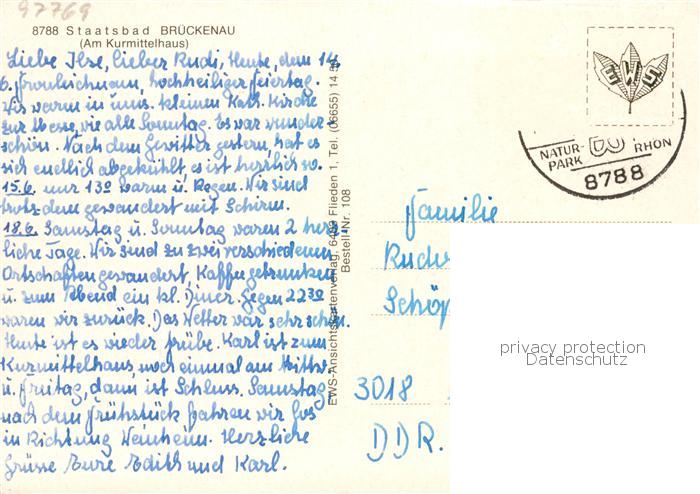 97769
8788 Staatsbad BRÜCKENAU
(Am Kurmittelhaus)
Liebe Ilse, lieber Rudi, Heute, dem 14.
6. Fronleichnam, hochheiliger Feiertag.
Wir warn in uns. kleinen Kath. Kirche
zur Messe, wie alle Sonntag. Es war wunder-
schön. Nach dem Gewitter gestern, hat es
sich endlich abgekühlt es ist herrlich so.
15.6. nur 13° warm u. Regen. Wir sind
trotzdem gewandert mit Schirm.
18.6. Samstag u. Sonntag waren 2 herr-
liche Tage. Wir sind zu zwei verschiedenen
Ortschaften gewandert, Kaffee getrunken
u. zum Abend ein kl. Diner. Gegen 22 30
waren wir zurück. Das Wetter war sehr schön.
Heute ist es wieder trübe. Karl ist zum
Kurmittelhaus, noch einmal am Mittw.
u. Freitag, dann ist Schluss. Samstag
nach dem Frühstück fahren wir los
in Richtung Weinheim. Herzliche
Grüsse Eure Edith und Karl.
EWS-Ansichtskartenverlag, 6409 Flieden 1, Tel. (06655) 14 54
Bestell-Nr. 108
EWS
NATUR-
PARK
RHÖN
8788
Familie
Rud
Schö
3018
DDR.
privacy protection
Datenschutz